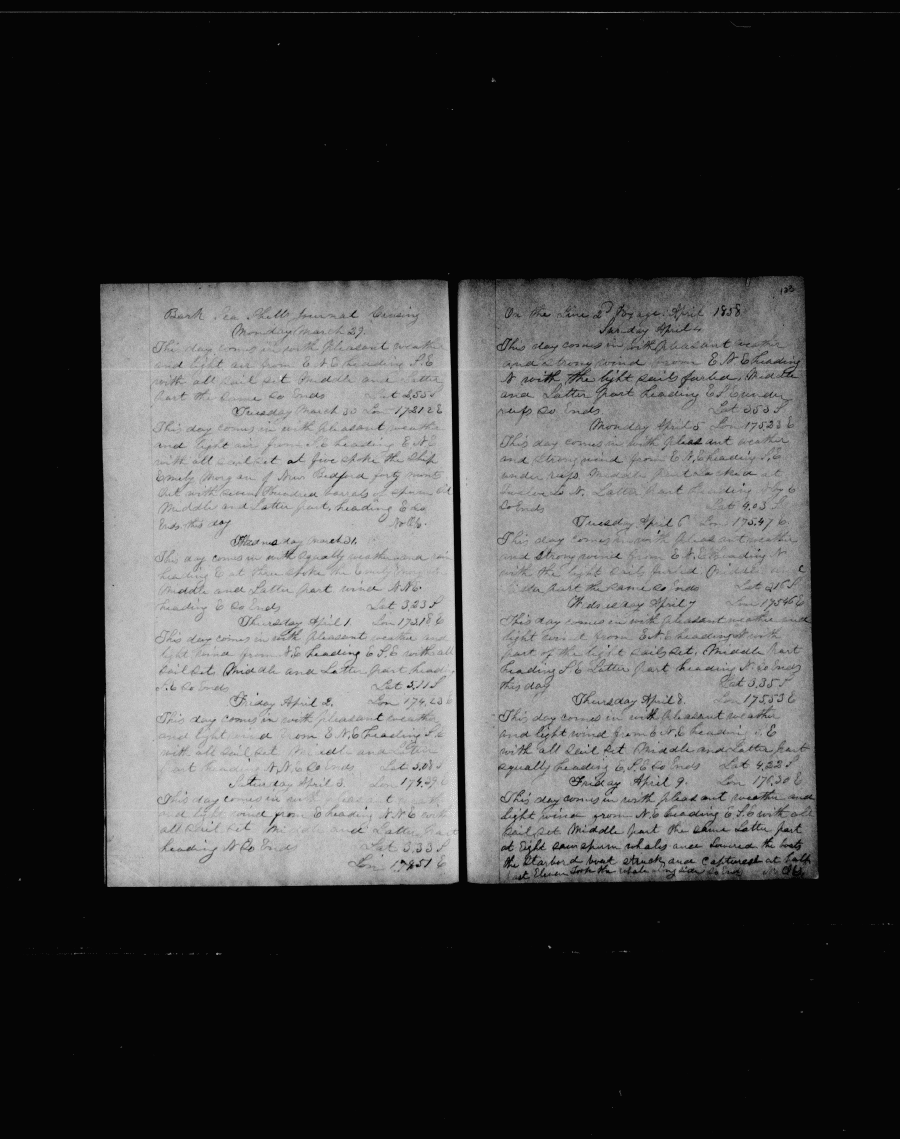 Bark Sea Journal Cruising
Monday March 29
This day comes in with pleasant weather
and light air from E.N.E heading S.E
with all sail set Middle and Latter
part the same So Ends Lat 2,55 S
Tuesday March 30 Lon 172 12 E
This day comes in with pleasant weather
and light air from heading E N E
with all sail set at five spoke the Ship
Emily Morgan of New Bedford forty months
out with hundred barrels of sperm Oil
Middle and Latter part heading E So
Ends this day No Obs.
March 31
This day comes in with squally weather and rain
heading E at three spoke the Emily Morgan
Middle and Latter part wind N.N.E.
heading E So Ends Lat 3,23 S
Thursday April 1. Lon 173 18 E
This day comes in with pleasant weather and
light wind from N.E heading E S.E with all
sail set Middle and Latter part heading
S.E So Ends Lat 3,11 S
Friday April 2. Lon 174,23 E
This day comes in with pleasant weather
and light wind from E N.E heading S.E
with all sail set Middle and Latter
part heading N.N.E So Ends Lat 3,08 S
Saturday April 3. Lon 174,29 E
This day comes in with pleasant weather
and light wind from E heading N.N.E with
all sail set Middle and Latter part
heading N.E Ends Lat 3,33 S
Lon 51 E
On the Line 2d Voyage. April 1858
Sunday April 4
This day comes in with pleasant weather
and strong wind from E.N.E heading
N with the light sails furled. Middle
and Latter part heading E S E under
reefs So Ends Lat 3 53 S
Monday April 5 Lon 175 23 E
This day comes in with pleasant weather
and strong wind from E.N.E heading S.E
under reefs Middle part tacked at
twelve to N. Latter part heading by E
So Ends Lat 4,03 S
Tuesday April 6 Lon 175,47 E
This day comes in with pleasant weather
and strong wind from E N.E heading N
with the light sail furled Middle and
Latter part the same So Ends Lat S
April 7 Lon 175 46 E
This day comes in with pleasant weather and
light wind from E.N.E heading N with
part of the light sails set, Middle part
heading S.E Latter part heading N. So Ends
this day Lat 3,35 S
Thursday April 8. Lon 175 53 E
This day comes in with pleasant weather
and light wind from E.N.E heading S.E
with all sail set Middle and Latter part
squally heading E.S.E So Ends Lat 4,22 S
Friday April 9. Lon 176,30 E
This day comes in with pleasant weather and
light wind from N.E heading E S.E with all
sail set Middle part the same Latter part
at Eight saw sperm whales and lowered the boats
the Starbord boat struck and captured at half
past Eleven took the whale along side So Ends No Obs